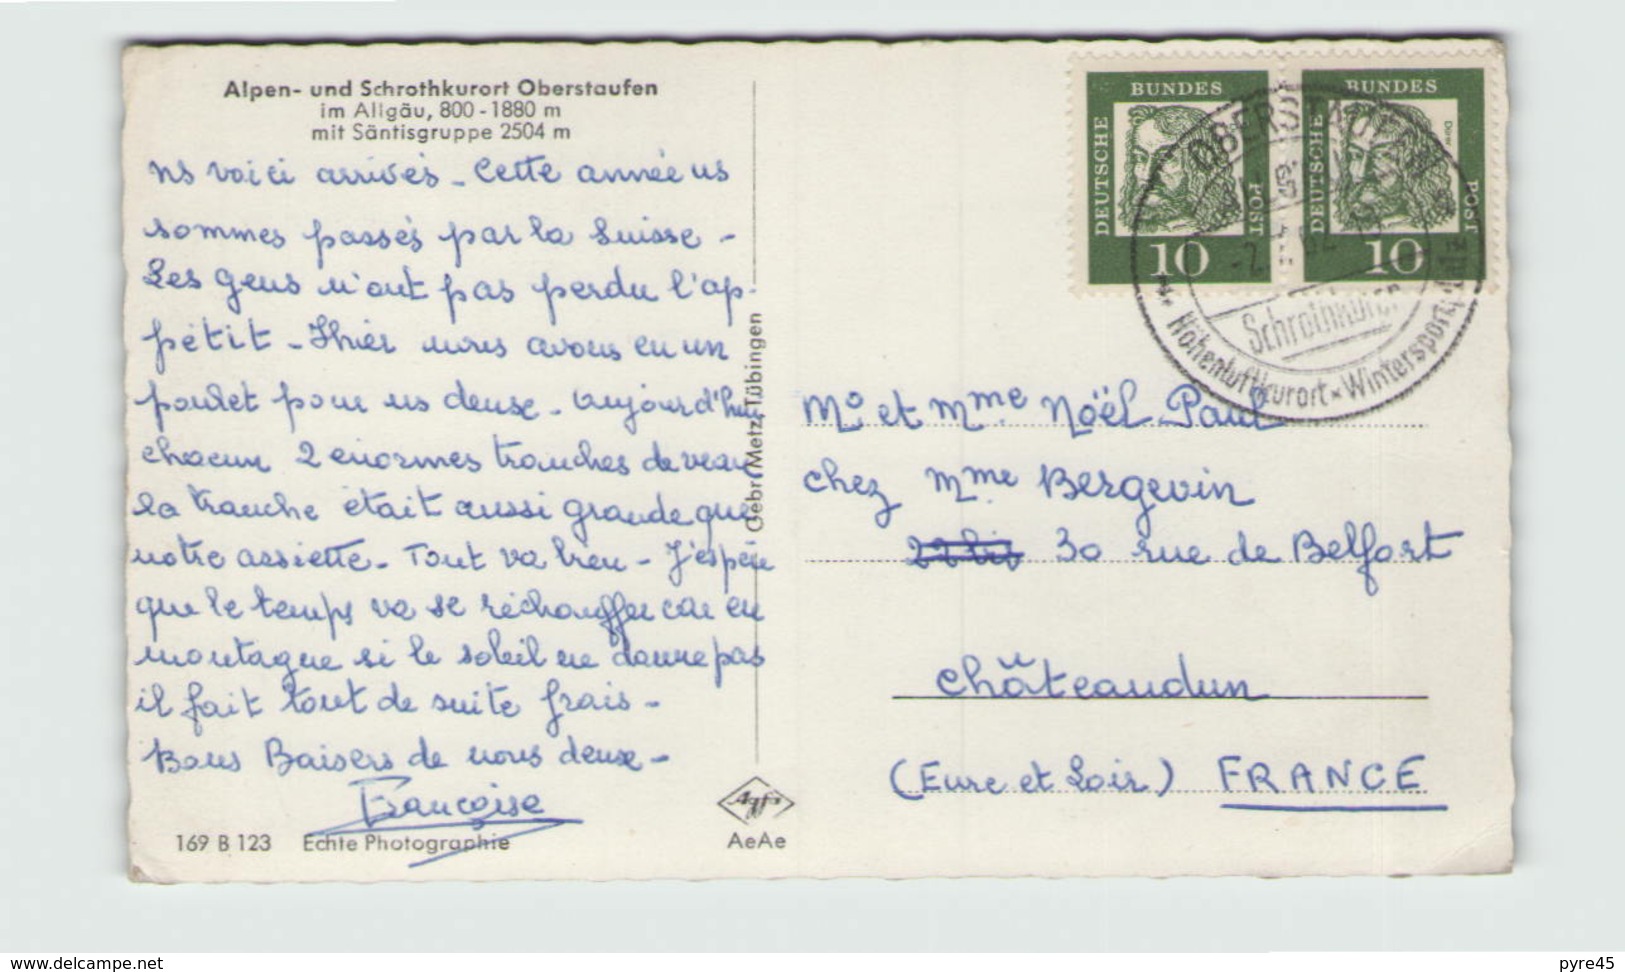 Alpen- und Schrothkurort Oberstaufen
im Allgäu, 800-1880 m
mit Säntisgruppe 2504 m
ns voici arrivés - Cette année ns
sommes passés par la Suisse -
Les gens n'ont pas perdu l'ap-
pétit - Hier nous avons eu un
poulet pour ns deux - Aujourd'hui
chacun 2 énormes tranches de veau
la tranche était aussi grande que
notre assiette - Tout va bien - J'espère
que le temps va se réchauffer car en
montagne si le soleil ne donne pas
il fait tout de suite frais -
Bons Baisers de nous deux -
Françoise
169 B 123 Echte Photographie
Gebr. Metz, Tübingen
Agfa
AeAe
BUNDES
DEUTSCHE
POST
10
BUNDES
DEUTSCHE
POST
Dürer
10
OBERSTAUFEN
Schrothkuren
Höhenluftkurort × Wintersport
Mr et Mme Noël Paul
chez Mme Bergevin
30 rue de Belfort
Châteaudun
(Eure et Loir) FRANCE
www.delcampe.net
pyre45